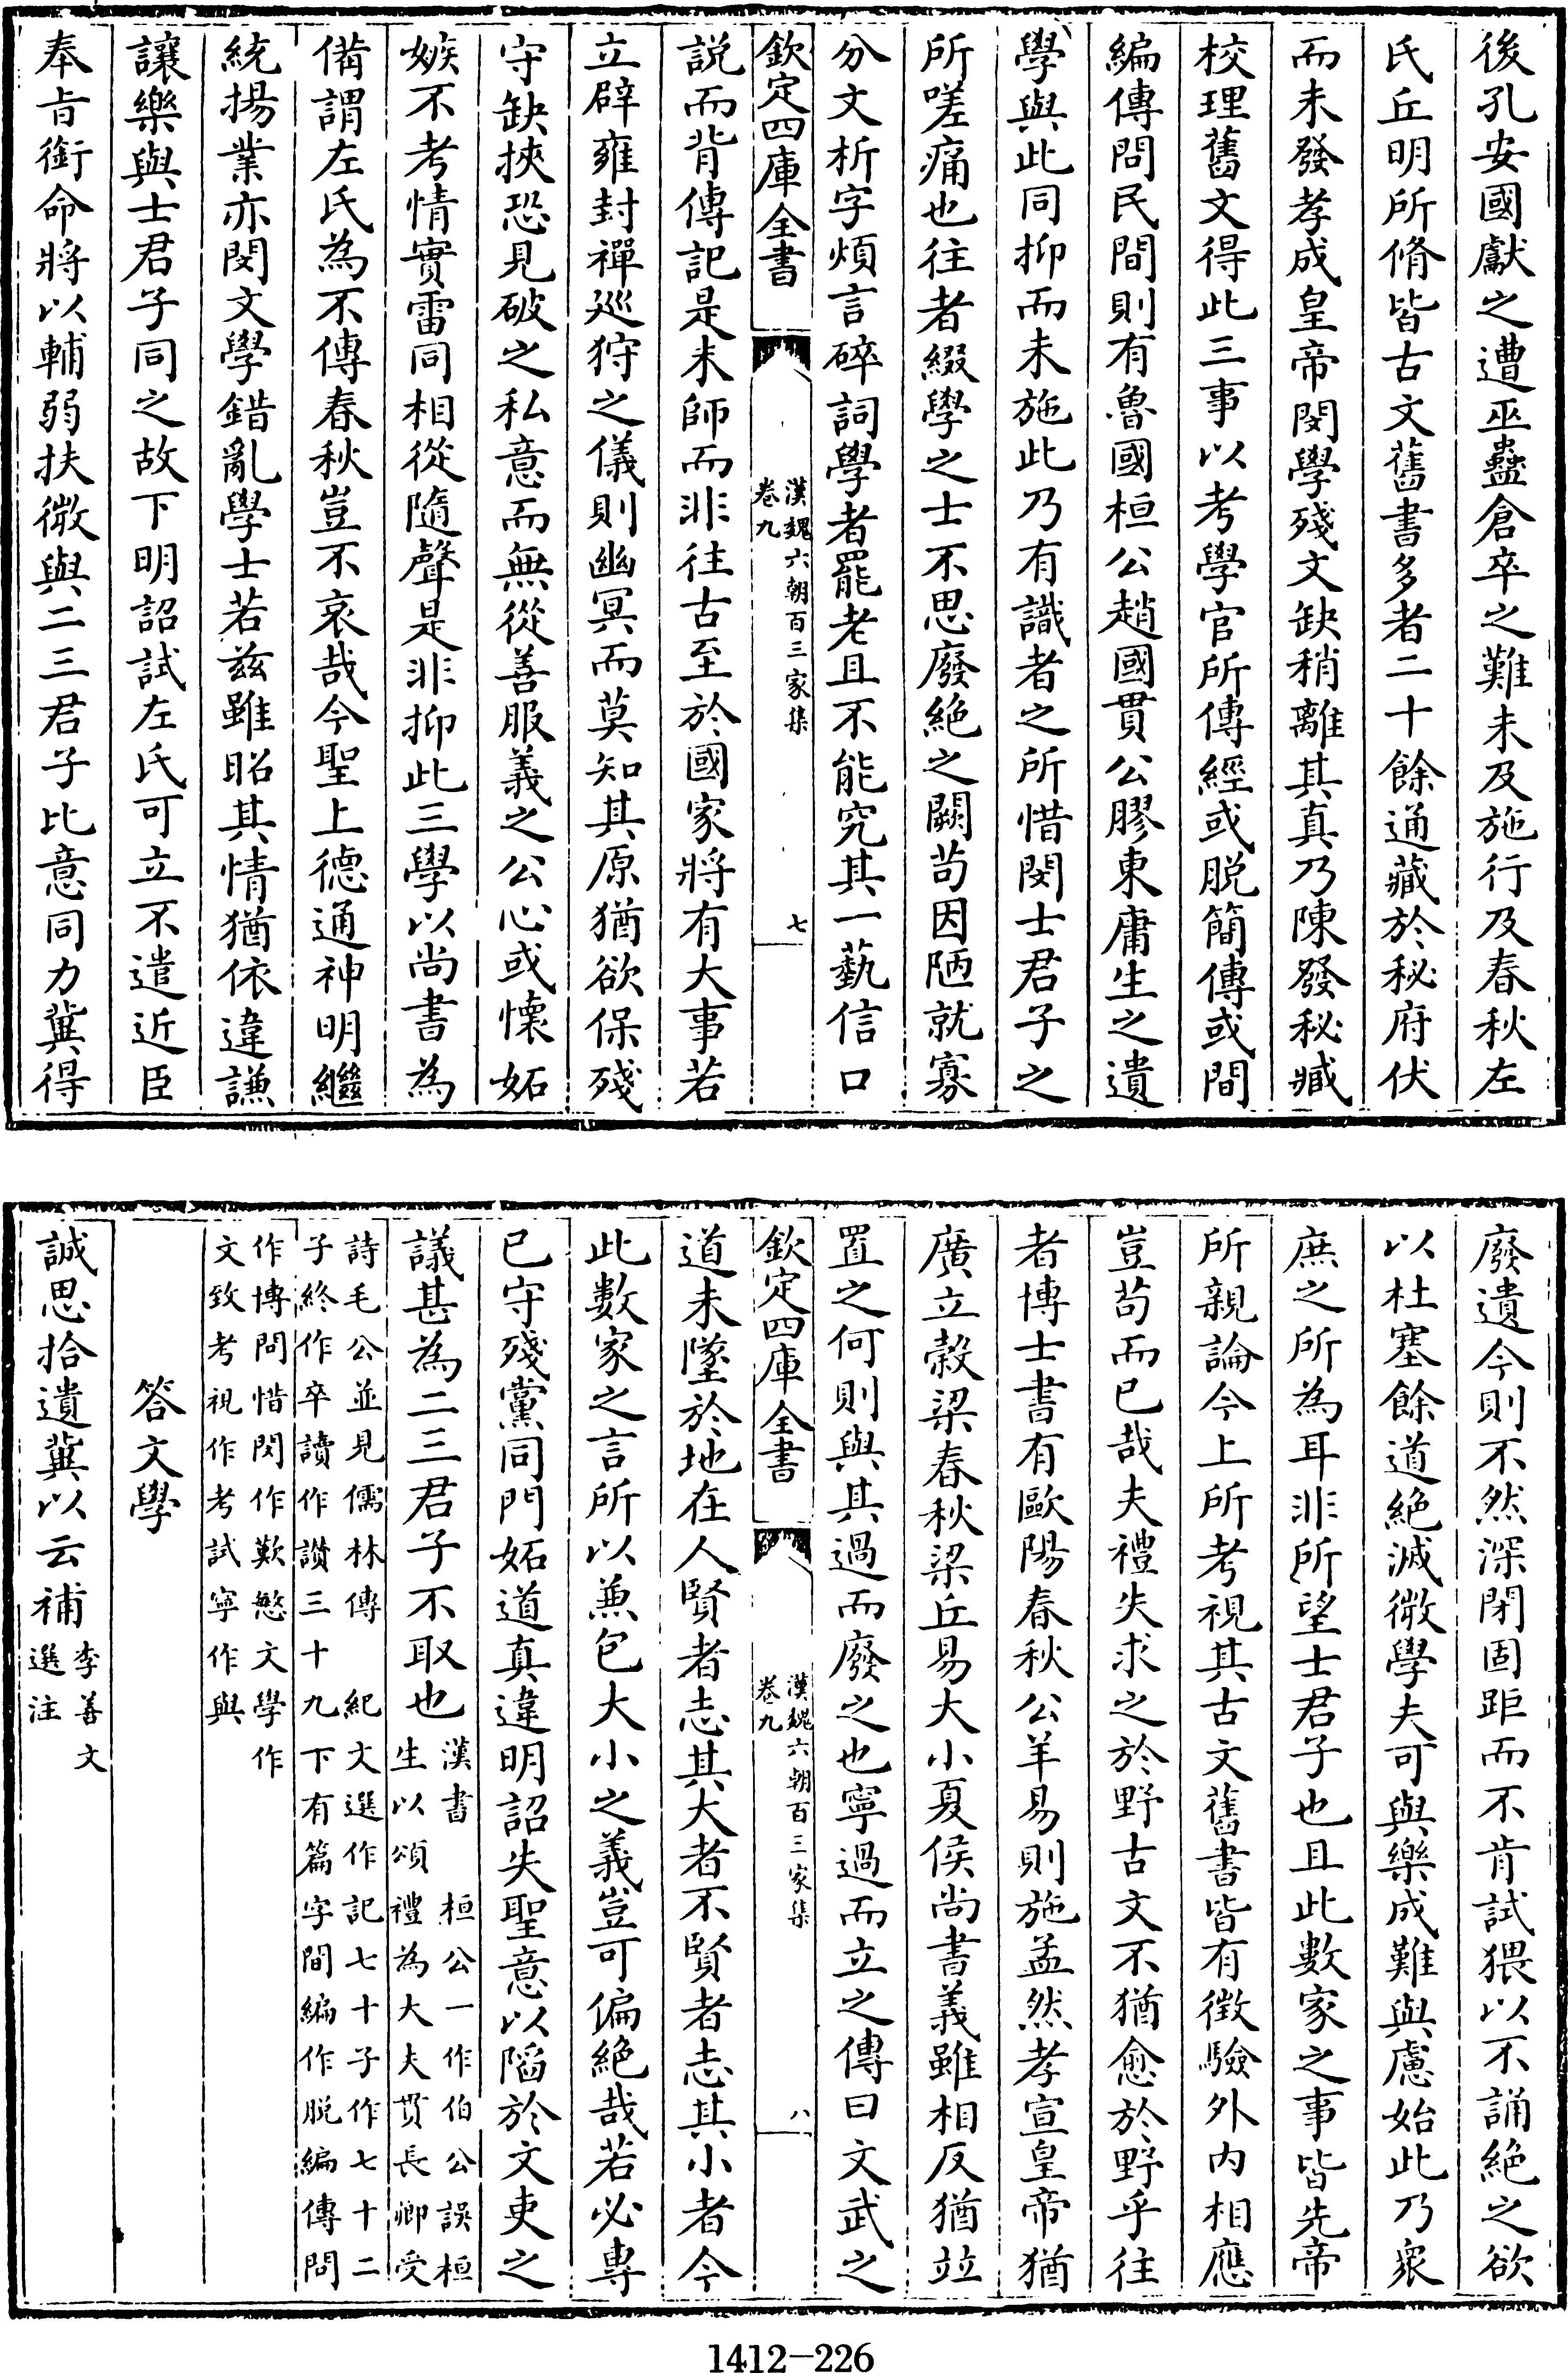 後孔安國獻之遭巫蠱倉卒之難未及施行及春秋左
氏丘明所脩皆古文舊書多者二十餘通藏於秘府伏
而未發孝成皇帝閔學殘文缺稍離其真乃陳發秘臧
校理舊文得此三事以考學官所傳經或脱簡傳或間
編傳問民間則有魯國桓公趙國貫公膠東庸生之遺
學與此同抑而未施此乃有識者之所惜閔士君子之
所嗟痛也往者綴學之士不思廢絶之闕苟因陋就寡
分文析字煩言碎詞學者罷老且不能究其一藝信口
欽定四庫全書
漢魏六朝百三家集
卷九
七
説而背傳記是末師而非往古至於國家將有大事若
立辟雍封禪巡狩之儀則幽冥而莫知其原猶欲保殘
守缺挾恐見破之私意而無從善服義之公心或懷妬
嫉不考情實雷同相從隨聲是非抑此三學以尚書為
備謂左氏為不傳春秋豈不哀哉今聖上德通神明繼
統揚業亦閔文學錯亂學士若兹雖昭其情猶依違謙
讓樂與士君子同之故下明詔試左氏可立不遣近臣
奉旨銜命將以輔弱扶微與二三君子比意同力冀得
廢遺今則不然深閉固距而不肯試猥以不誦絶之欲
以杜塞餘道絶滅微學夫可與樂成難與慮始此乃衆
庶之所為耳非所望士君子也且此數家之事皆先帝
所親論今上所考視其古文舊書皆有徵驗外内相應
豈苟而已哉夫禮失求之於野古文不猶愈於野乎往
者博士書有歐陽春秋公羊易則施孟然孝宣皇帝猶
廣立榖梁春秋梁丘易大小夏侯尚書義雖相反猶竝
置之何則與其過而廢之也寧過而立之傳曰文武之
欽定四庫全書
漢魏六朝百三家集
卷九
八
道未墜於地在人賢者志其大者不賢者志其小者今
此數家之言所以兼包大小之義豈可偏絶哉若必專
已守殘黨同門妬道真違明詔失聖意以陷於文吏之
議甚為二三君子不取也
漢書 桓公一作伯公誤桓
生以頌禮為大夫貫長卿受
詩毛公並見儒林傳 紀文選作記七十子作七十二
子終作卒讀作讃三十九下有篇字間編作脱編傳問
作博問惜閔作歎慜文學作
文致考視作考試寧作與
答文學
誠思拾遺冀以云補
李善文
選注
1412-226